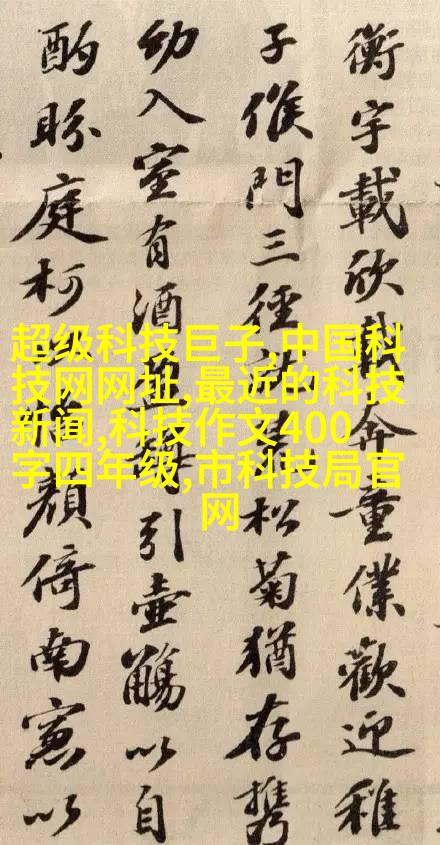 衡宇載欣載奔童僕歡迎稚
子候門三徑就松菊猶存携
幼入室有酒引壺觴以自
酌眄庭柯顔倚南窓以
超级科技巨子,中国科
技网网址,最近的科技
新闻,科技作文400
字四年级,市科技局官
网